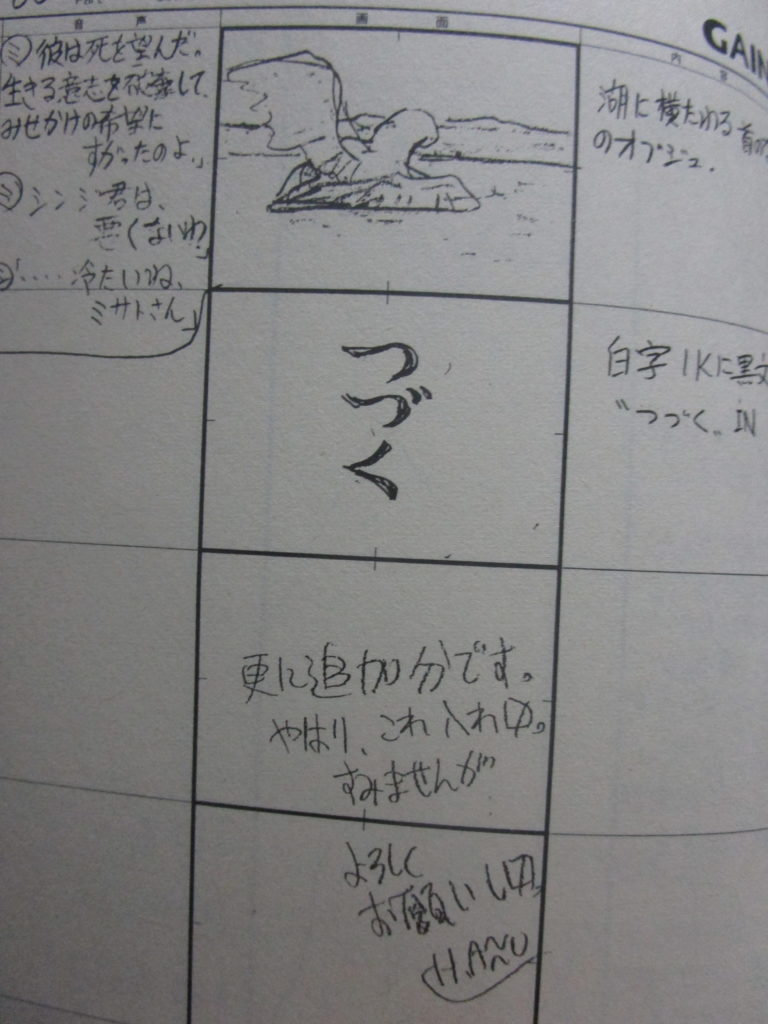 音 声
画 面
内 容
GAIN
㋯ 彼は死を望んだ。
生きる意志を放棄して、
みせかけの希望に
すがったのよ。」
㋛ シンジ君は、
悪くないわ」
「‥‥冷たいね、
ミサトさん」
湖に横たわる首の
のオブジェ.
つづく
白字1Kに黒文
"つづく" IN
更に追加分です。
やはり、これ入れ〼。
すみませんが
よろしく
お願いし〼。
H.ANNO